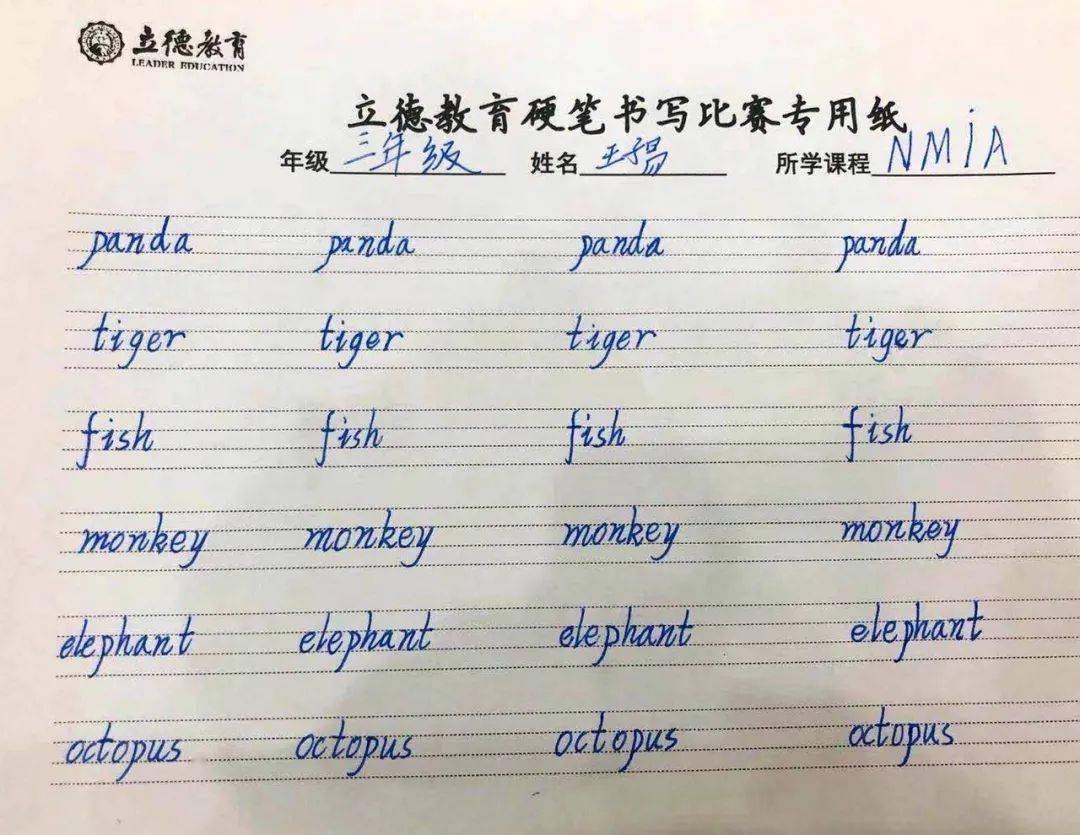 立德教育
LEADER EDUCATION
立德教育硬笔书写比赛专用纸
年级 三年级 姓名 王 所学课程 NMiA
panda panda panda panda
tiger tiger tiger tiger
fish fish fish fish
monkey monkey monkey monkey
elephant elephant elephant elephant
octopus octopus octopus octopus